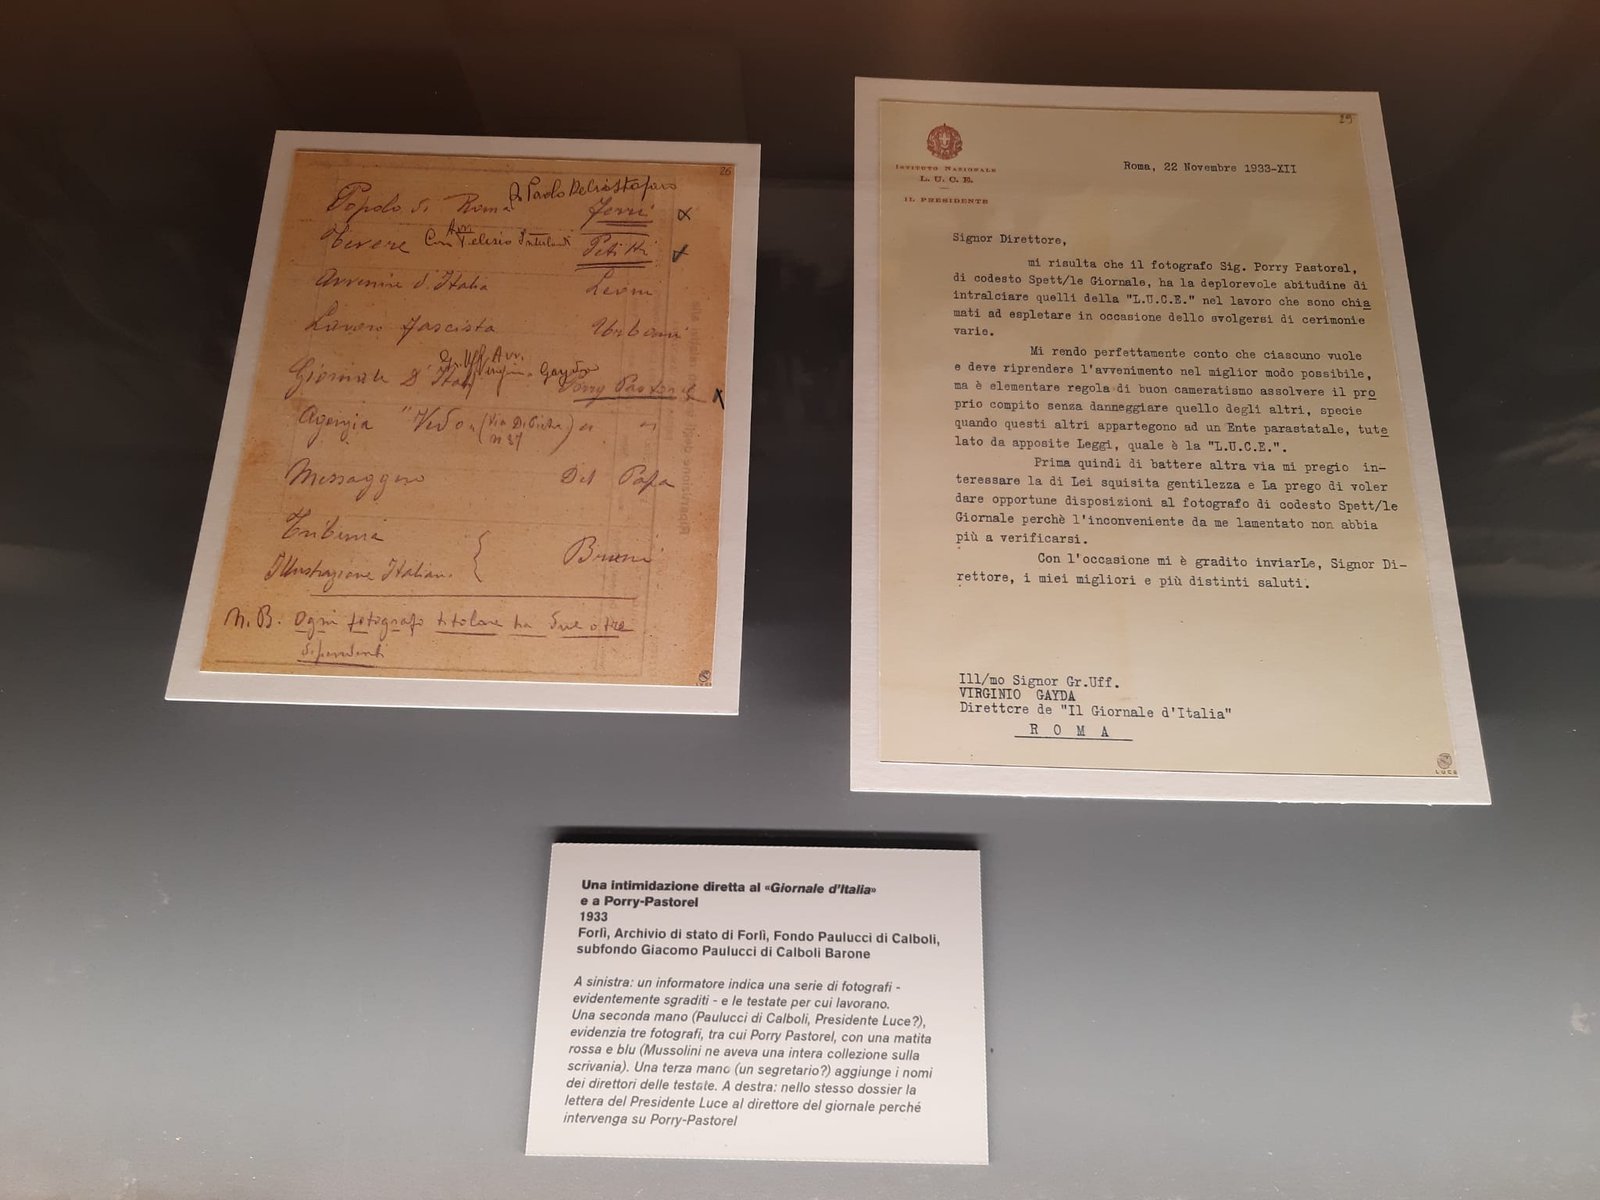 26
Popolo di Roma Paolo De Cristofaro Ferri
Tevere Com Avv. Telesio Interlandi Petitti
Avvenire d'Italia Leoni
Lavoro fascista Urbani
Giornale D'Italia Gr. Uff. Avv. Virginio Gayda Porry Pastorel
Agenzia "Vedo"
n 37
Messaggero Del Papa
Tribuna
Illustrazione Italiana Bruni
N.B. Ogni fotografo titolare ha due o tre
dipendenti
29
ISTITUTO NAZIONALE
L. U. C. E.
IL PRESIDENTE
Roma, 22 Novembre 1933-XII
Signor Direttore,
mi risulta che il fotografo Sig. Porry Pastorel,
di codesto Spett/le Giornale, ha la deplorevole abitudine di
intralciare quelli della "L.U.C.E." nel lavoro che sono chia
mati ad espletare in occasione dello svolgersi di cerimonie
varie.
Mi rendo perfettamente conto che ciascuno vuole
e deve riprendere l'avvenimento nel miglior modo possibile,
ma è elementare regola di buon cameratismo assolvere il pro
prio compito senza danneggiare quello degli altri, specie
quando questi altri appartegono ad un Ente parastatale, tute
lato da apposite Leggi, quale è la "L.U.C.E.".
Prima quindi di battere altra via mi pregio in-
teressare la di Lei squisita gentilezza e La prego di voler
dare opportune disposizioni al fotografo di codesto Spett/le
Giornale perchè l'inconveniente da me lamentato non abbia
più a verificarsi.
Con l'occasione mi è gradito inviarLe, Signor Di-
rettore, i miei migliori e più distinti saluti.
Ill/mo Signor Gr.Uff.
VIRGINIO GAYDA
Direttore de "Il Giornale d'Italia"
R O M A
LUCE
Una intimidazione diretta al «Giornale d'Italia»
e a Porry-Pastorel
1933
Forlì, Archivio di stato di Forlì, Fondo Paulucci di Calboli,
subfondo Giacomo Paulucci di Calboli Barone
A sinistra: un informatore indica una serie di fotografi -
evidentemente sgraditi - e le testate per cui lavorano.
Una seconda mano (Paulucci di Calboli, Presidente Luce?),
evidenzia tre fotografi, tra cui Porry Pastorel, con una matita
rossa e blu (Mussolini ne aveva una intera collezione sulla
scrivania). Una terza mano (un segretario?) aggiunge i nomi
dei direttori delle testate. A destra: nello stesso dossier la
lettera del Presidente Luce al direttore del giornale perché
intervenga su Porry-Pastorel